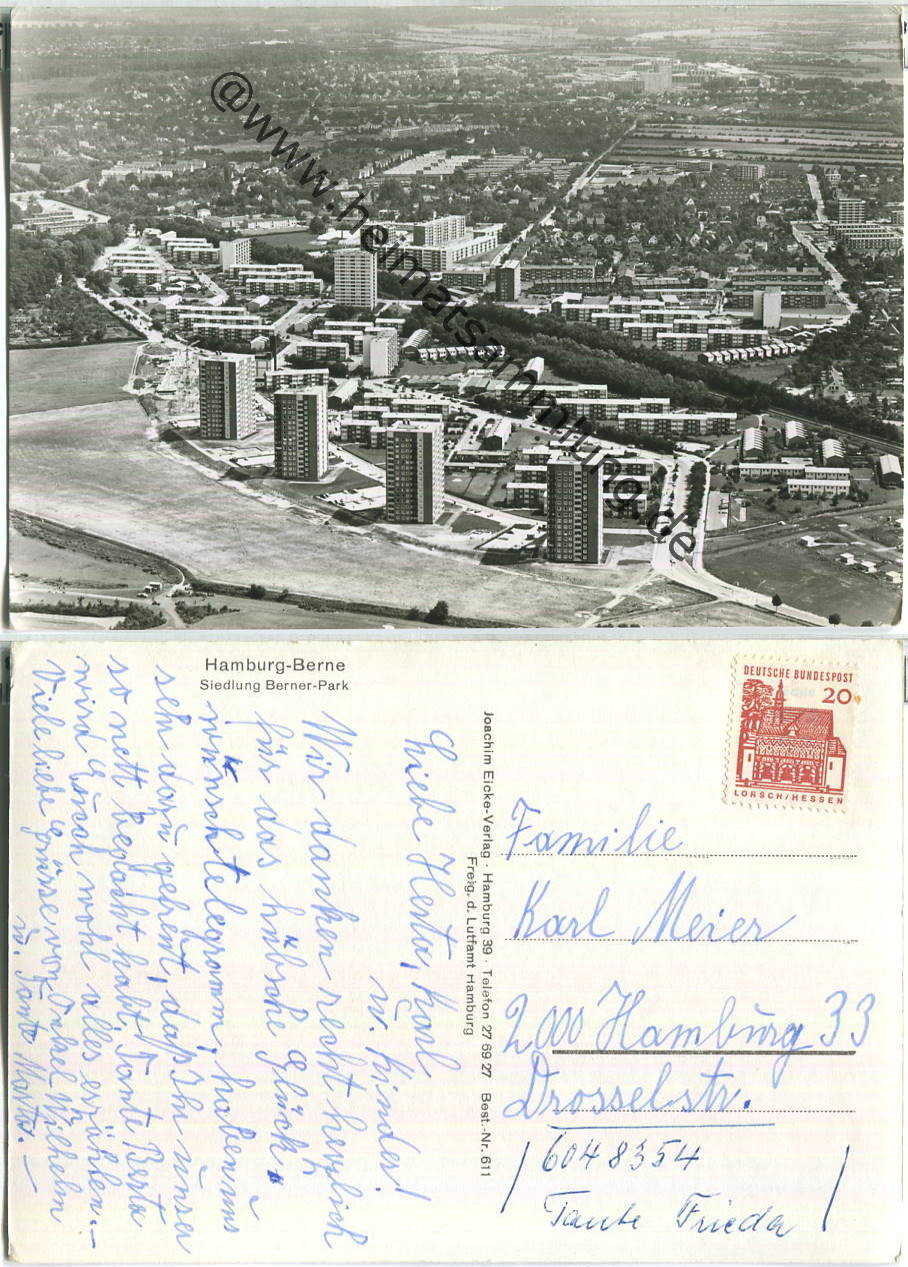 @ www.heimatsammlung.de
Hamburg-Berne
Siedlung Berner-Park
DEUTSCHE BUNDESPOST
20
LORSCH/HESSEN
Liebe Herta, Karl
u. Kinder!
Wir danken recht herzlich
für das hübsche Glück-
wunschtelegramm, haben uns
sehr darü gefreut, daß Ihr unser
so nett bedacht habt. Tante Berta
wird Euch wohl alles erzählen.–
Viele liebe Grüsse von Onkel Wilhelm
u. Tante Marta.–
Joachim Eicke-Verlag · Hamburg 39 · Telefon 27 69 27 Best.-Nr. 611
Freig. d. Luftamt Hamburg
Familie
Karl Meier
2000 Hamburg 33
Drosselstr.
6048354
Tante Frieda